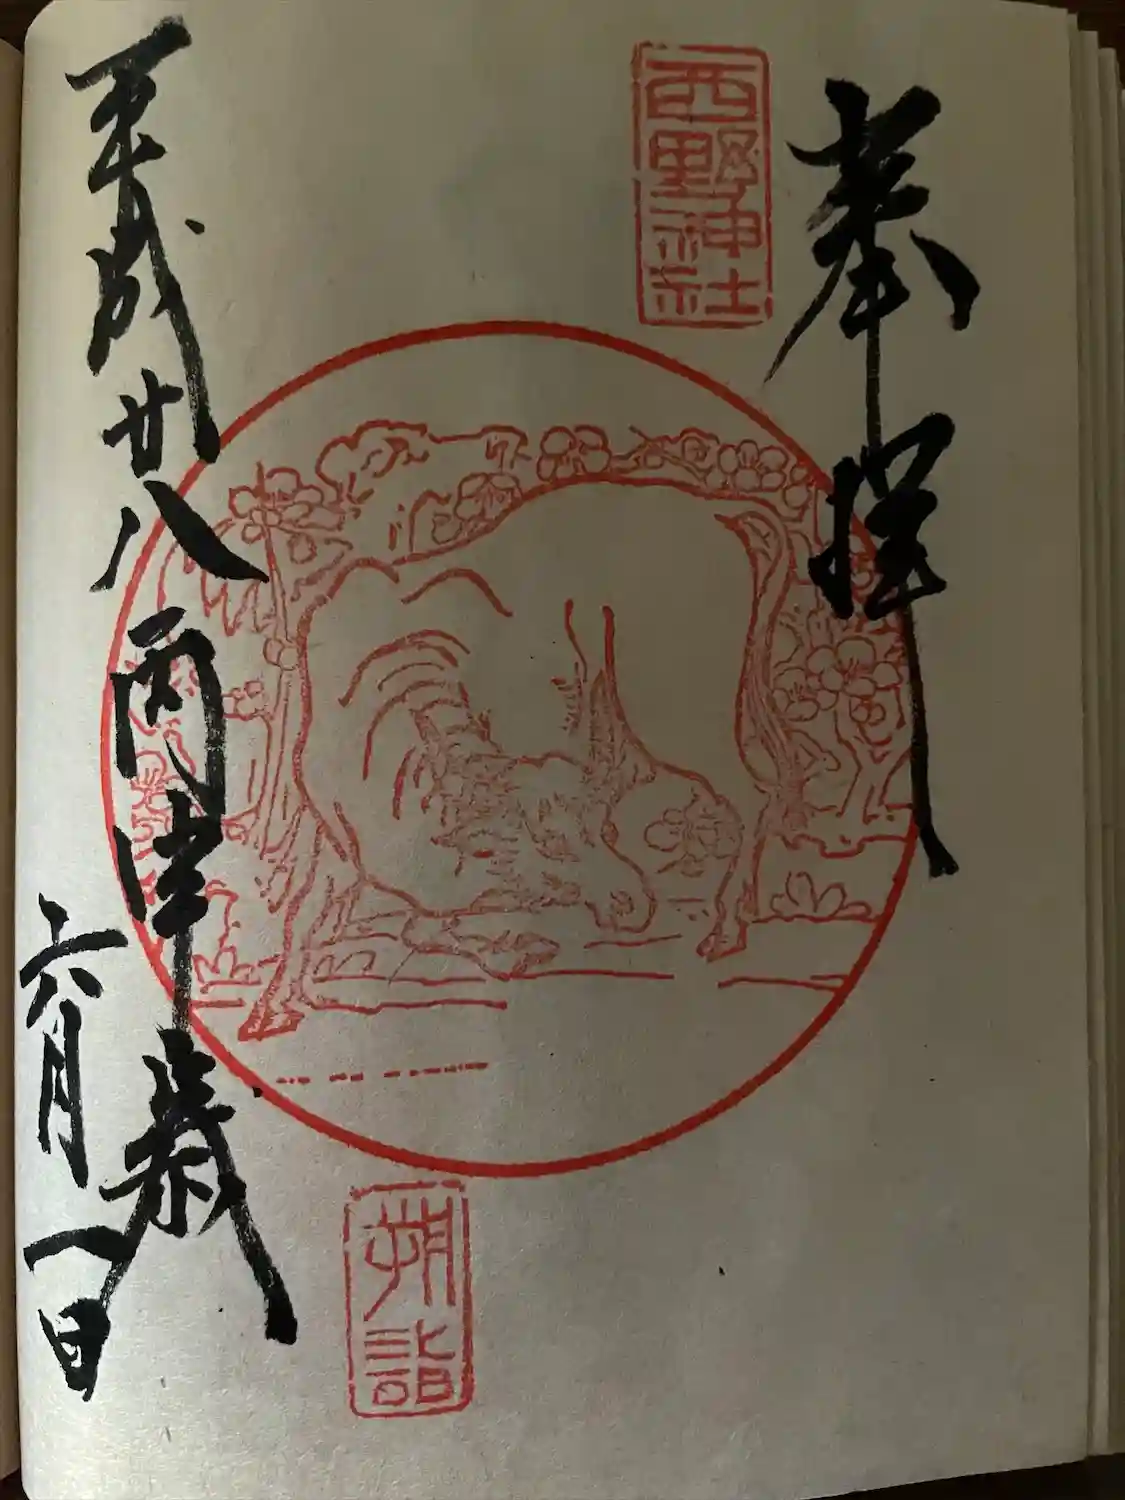 奉拝
西野神社
朔詣
平成廿八丙申歳
六月一日